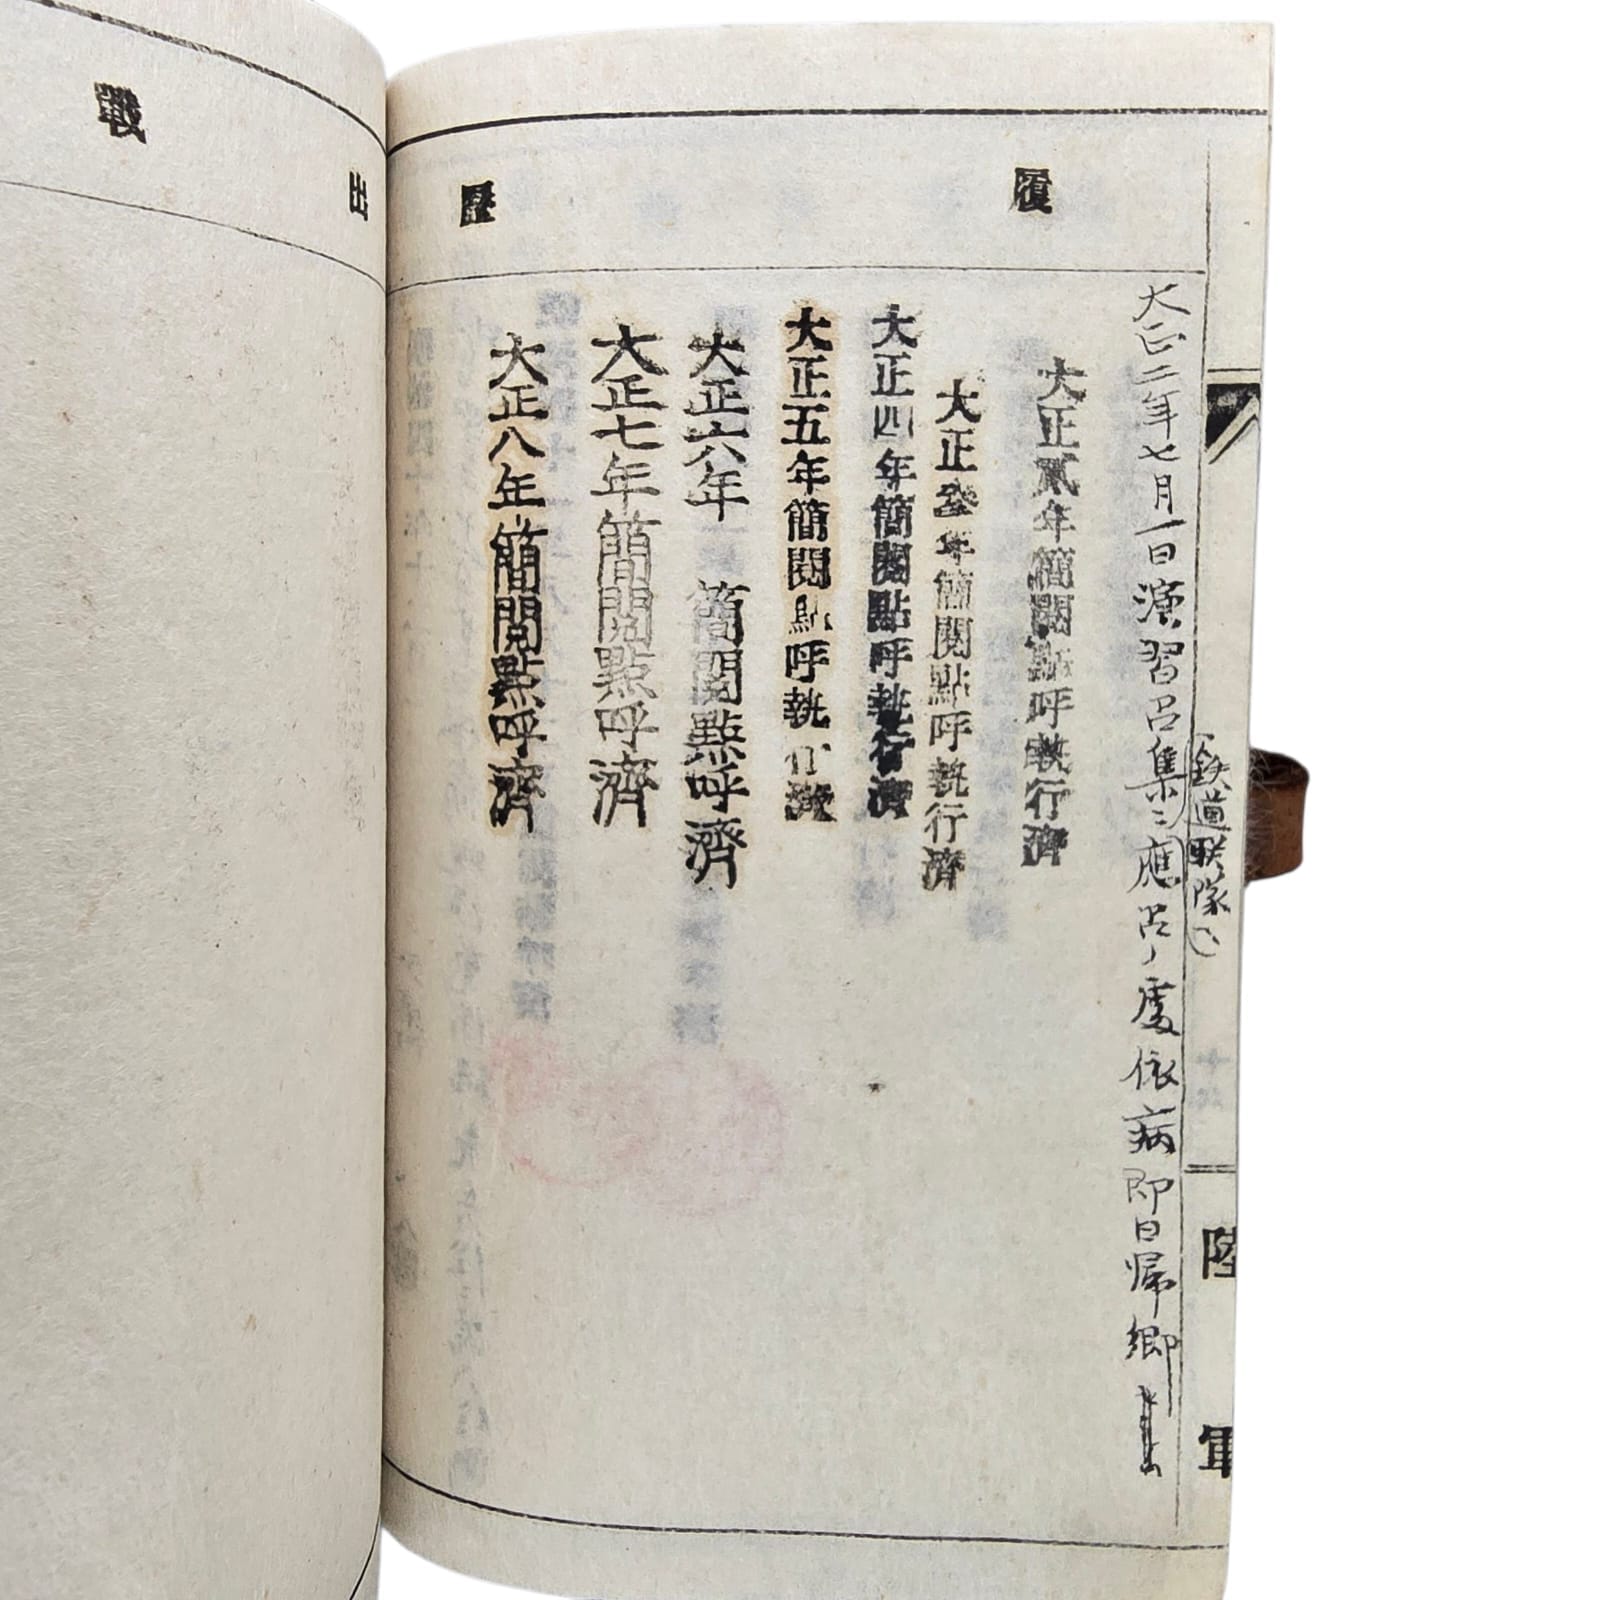 履歷
大正二年七月一日演習召集ニ應召ノ處依病即日帰郷
(鉄道联隊)
大正貳年簡閱點呼執行濟
大正參年簡閱點呼執行濟
大正四年簡閱點呼執行濟
大正五年簡閱點呼執行濟
大正六年簡閱點呼濟
大正七年簡閱點呼濟
大正八年簡閱點呼濟
陸軍
出戰